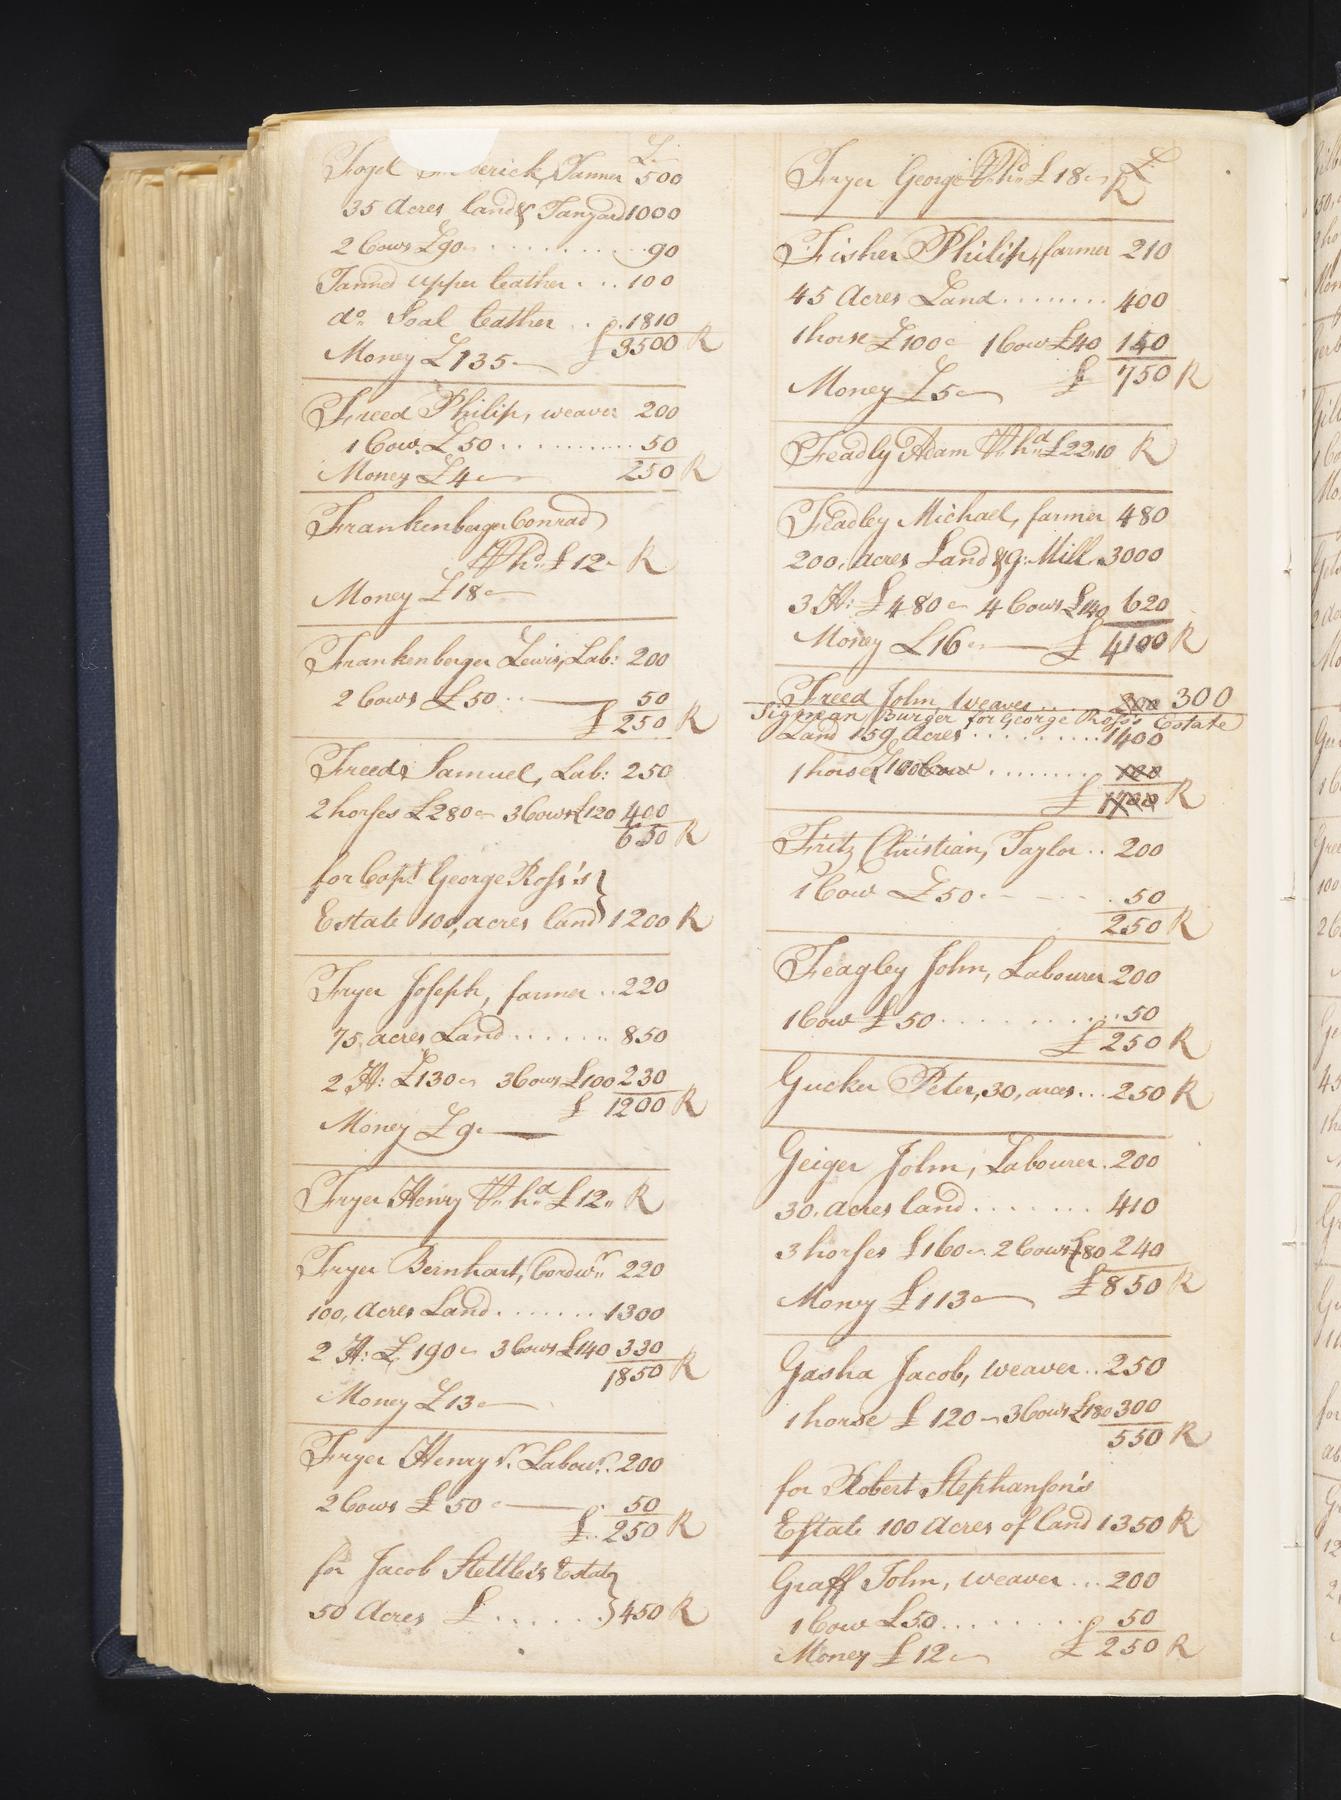 £
Fogel erick, Tanner 500
35 Acres land & Tanyard 1000
2 Cows £90 90
Tanned upper leather 100
do. Soal leather 1810
Money £135 £ 3500 R
Freed Philip, weaver 200
1 Cow £50 50
Money £4 250 R
Frankenberger Conrad
£12 R
Money £18
Frankenberger Lewis, Lab: 200
2 Cows £50 50
£ 250 R
Freed Samuel, Lab: 250
2 horses £280 3 Cows £120 400
650 R
for Capt George Ross's
Estate 100, acres land 1200 R
Fryer Joseph, farmer 220
75, acres Land 850
2 H: £130 3 Cows £100 230
£ 1200 R
Money £9
Fryer Henry £12 R
Fryer Bernhart, Cordwr 220
100, Acres Land 1300
2 H: £190 3 Cows £140 330
1850 R
Money £13
Fryer Henry Labour 200
2 Cows £50 50
£ 250 R
for Jacob Stettlers Estate
50 Acres £ 450 R
£
Fryer George £18 R
Fisher Philip, farmer 210
45 Acres Land 400
1 horse £100 1 Cow £40 140
£ 750 R
Money £5
Feadly Adam £22,10 R
Feadley Michael, farmer 480
200, acres Land & G: Mill 3000
3 H: £480 4 Cows £140 620
Money £16 £ 4100 R
Freed John, Weaver 300 300
Sigman Burger for George Ross's Estate
Land 159, Acres 1400
1 horse £100 Cow 100
£ R
Fritz Christian, Taylor 200
1 Cow £50 50
250 R
Feagley John, Labourer 200
1 Cow £50 50
£ 250 R
Gucker Peter, 30, acres 250 R
Geiger John, Labourer 200
30, acres land 410
3 horses £160 2 Cows £80 240
£ 850 R
Money £113
Gasha Jacob, weaver 250
1 horse £120 3 Cows £180 300
550 R
for Robert Stephanson's
Estate 100 Acres of land 1350 R
Graff John, weaver 200
1 Cow £50 50
Money £12 £ 250 R